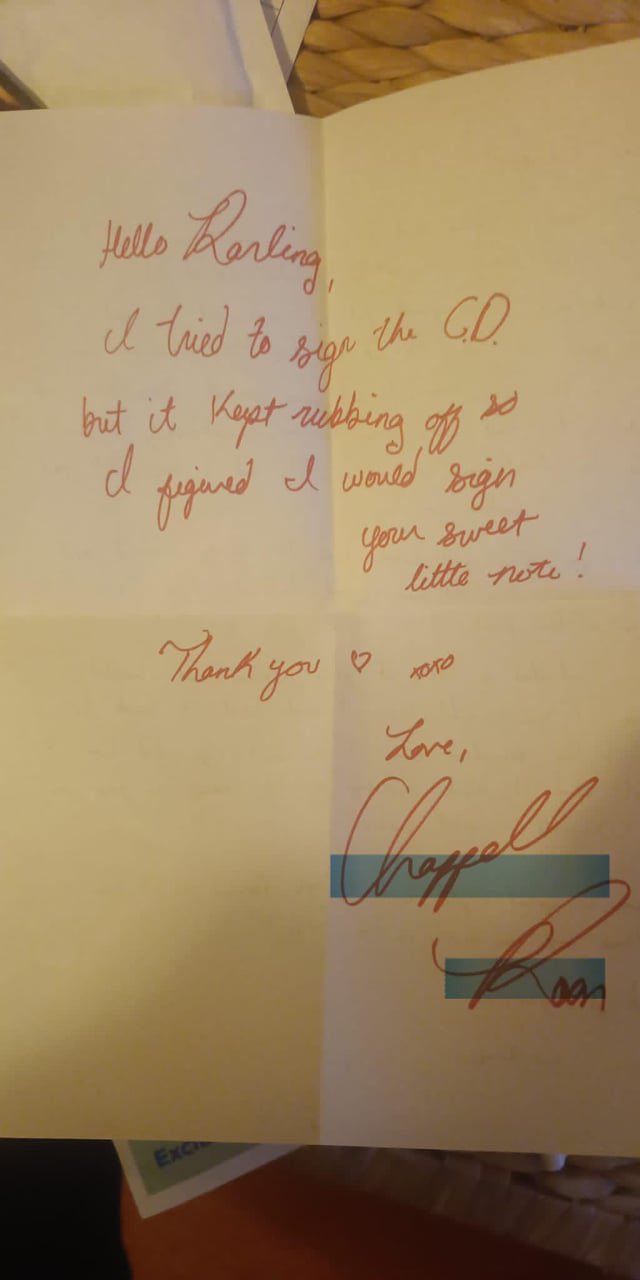 Hello Darling,
I tried to sign the C.D.
but it kept rubbing off so
I figured I would sign
your sweet
little note!
Thank you ♡ xoxo
Love,
Chappell
Roan